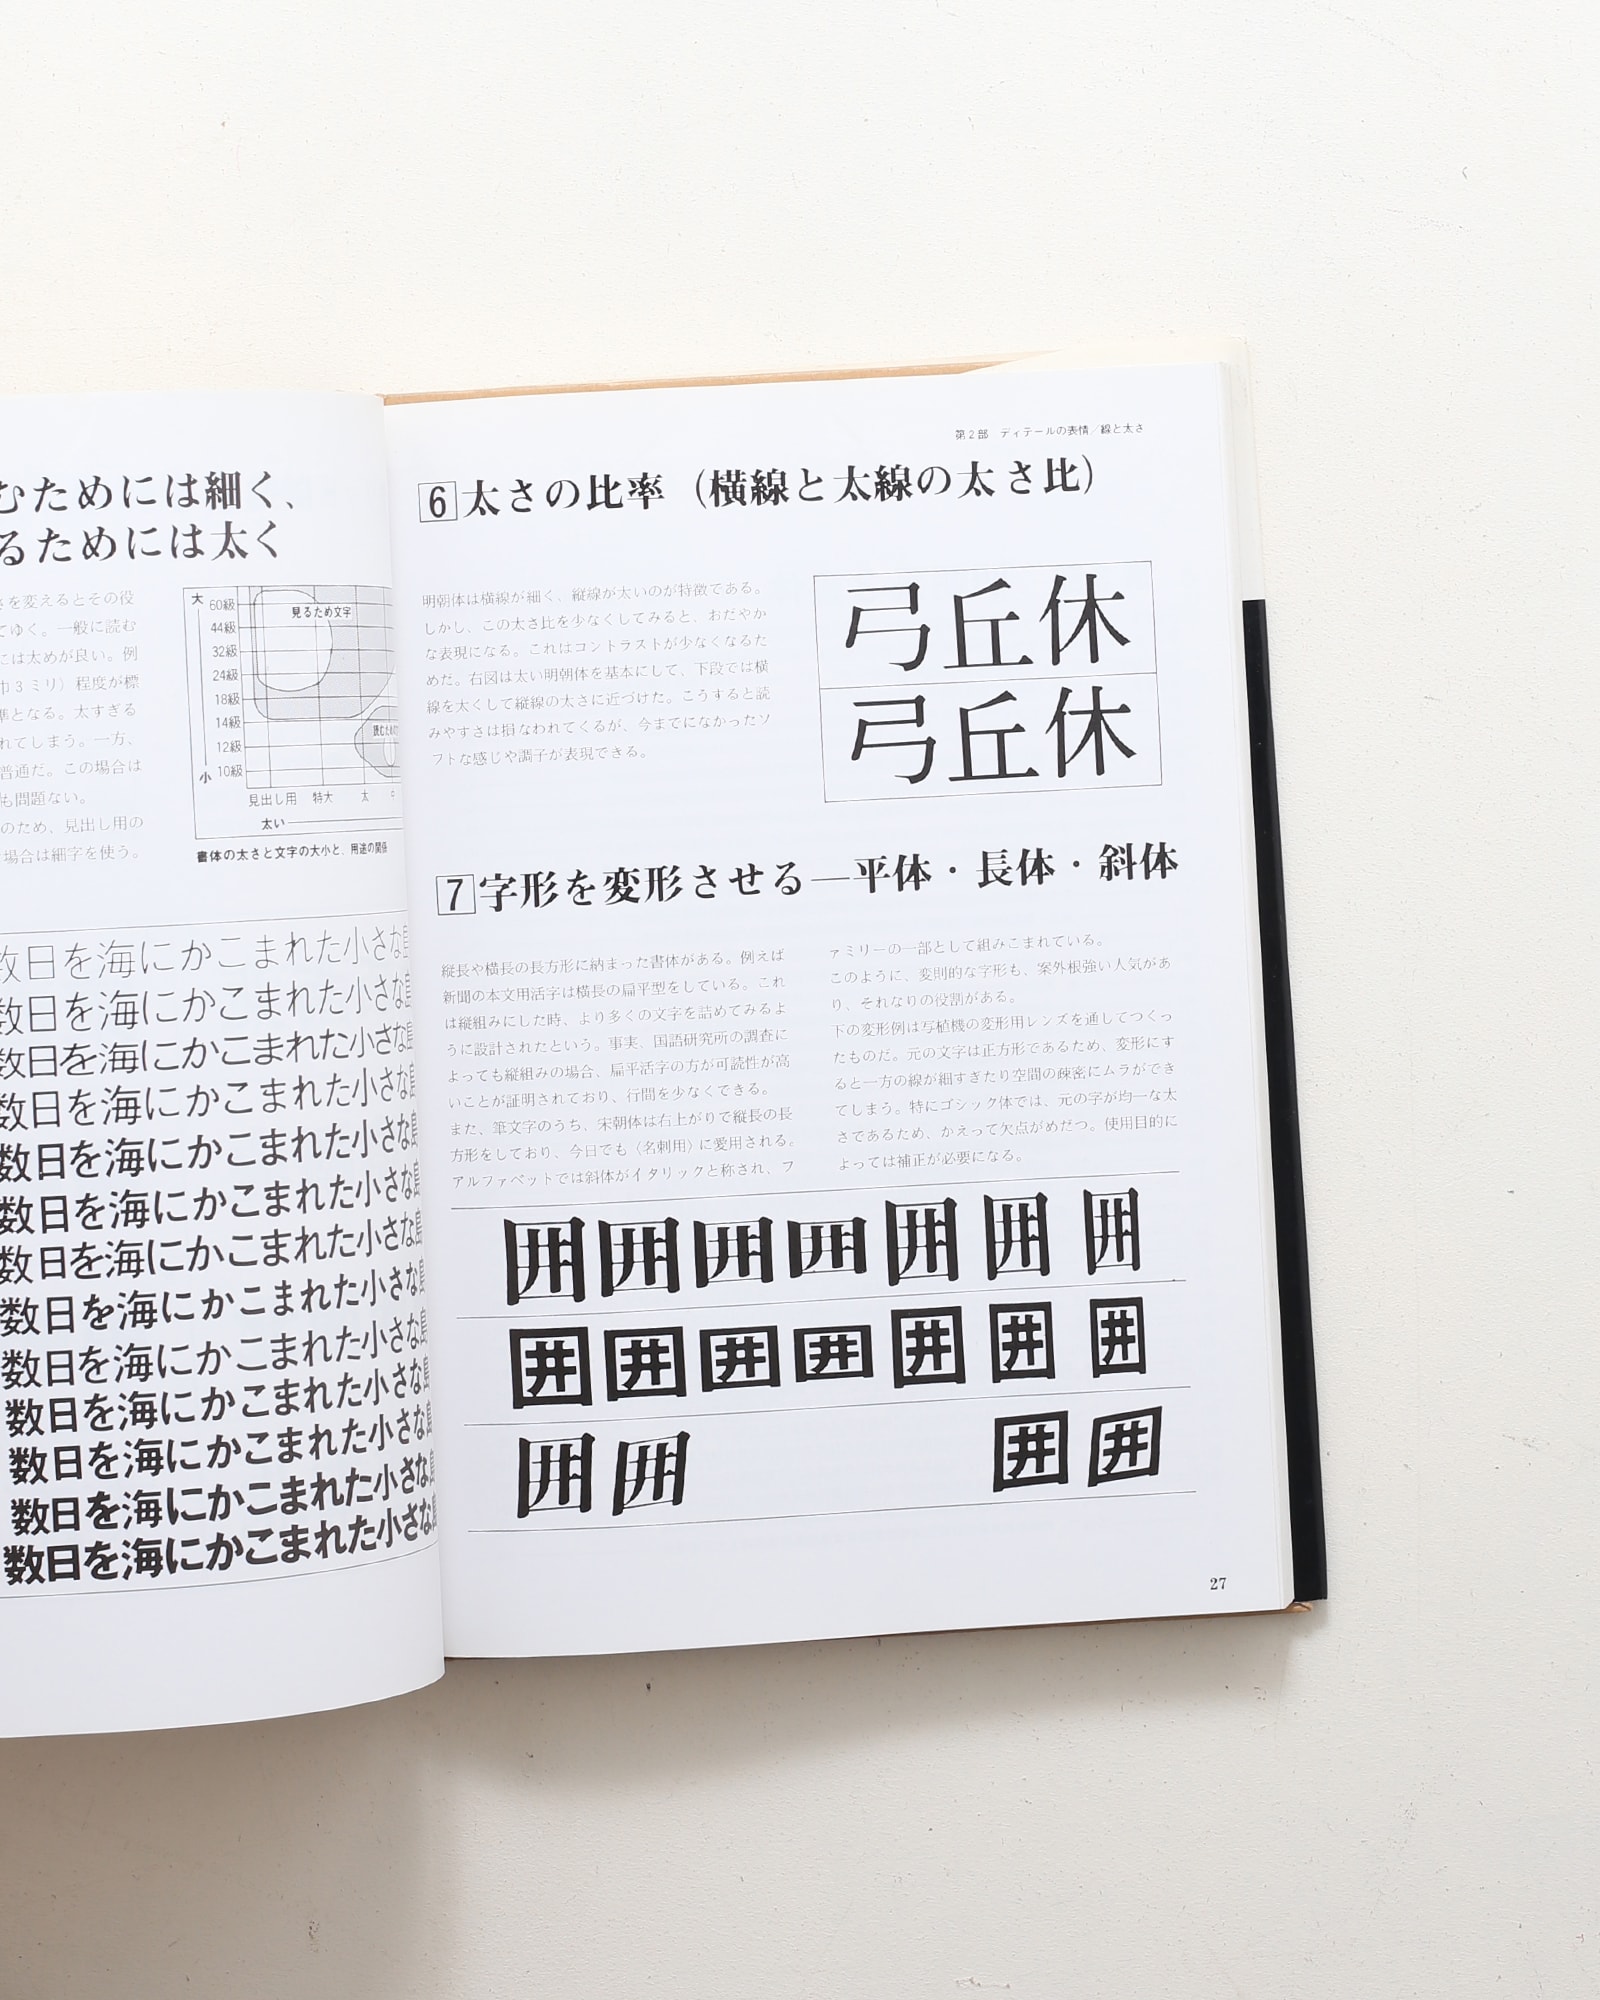 むためには細く、
るためには太く
さを変えるとその役
てゆく。一般に読む
には太めが良い。例
巾3ミリ）程度が標
準となる。太すぎる
れてしまう。一方、
普通だ。この場合は
も問題ない。
のため、見出し用の
場合は細字を使う。
大
60級
44級
32級
24級
18級
14級
12級
10級
小
見るため文字
読むため
見出し用 特大 太
太い
書体の太さと文字の大小と、用途の関係
数日を海にかこまれた小さな島
数日を海にかこまれた小さな島
数日を海にかこまれた小さな島
数日を海にかこまれた小さな島
数日を海にかこまれた小さな島
数日を海にかこまれた小さな島
数日を海にかこまれた小さな島
数日を海にかこまれた小さな島
数日を海にかこまれた小さな島
数日を海にかこまれた小さな島
数日を海にかこまれた小さな島
数日を海にかこまれた小さな島
数日を海にかこまれた小さな島
第2部 ディテールの表情／線と太さ
6 太さの比率（横線と太線の太さ比）
明朝体は横線が細く、縦線が太いのが特徴である。
しかし、この太さ比を少なくしてみると、おだやか
な表現になる。これはコントラストが少なくなるた
めだ。右図は太い明朝体を基本にして、下段では横
線を太くして縦線の太さに近づけた。こうすると読
みやすさは損なわれてくるが、今までになかったソ
フトな感じや調子が表現できる。
弓丘休
弓丘休
7 字形を変形させる—平体・長体・斜体
縦長や横長の長方形に納まった書体がある。例えば
新聞の本文用活字は横長の扁平型をしている。これ
は縦組みにした時、より多くの文字を詰めてみるよ
うに設計されたという。事実、国語研究所の調査に
よっても縦組みの場合、扁平活字の方が可読性が高
いことが証明されており、行間を少なくできる。
また、筆文字のうち、宋朝体は右上がりで縦長の長
方形をしており、今日でも〈名刺用〉に愛用される。
アルファベットでは斜体がイタリックと称され、フ
ァミリーの一部として組みこまれている。
このように、変則的な字形も、案外根強い人気があ
り、それなりの役割がある。
下の変形例は写植機の変形用レンズを通してつくっ
たものだ。元の文字は正方形であるため、変形にす
ると一方の線が細すぎたり空間の疎密にムラができ
てしまう。特にゴシック体では、元の字が均一な太
さであるため、かえって欠点がめだつ。使用目的に
よっては補正が必要になる。
囲囲囲囲囲囲囲
囲囲囲囲囲囲囲
囲囲 囲囲
27